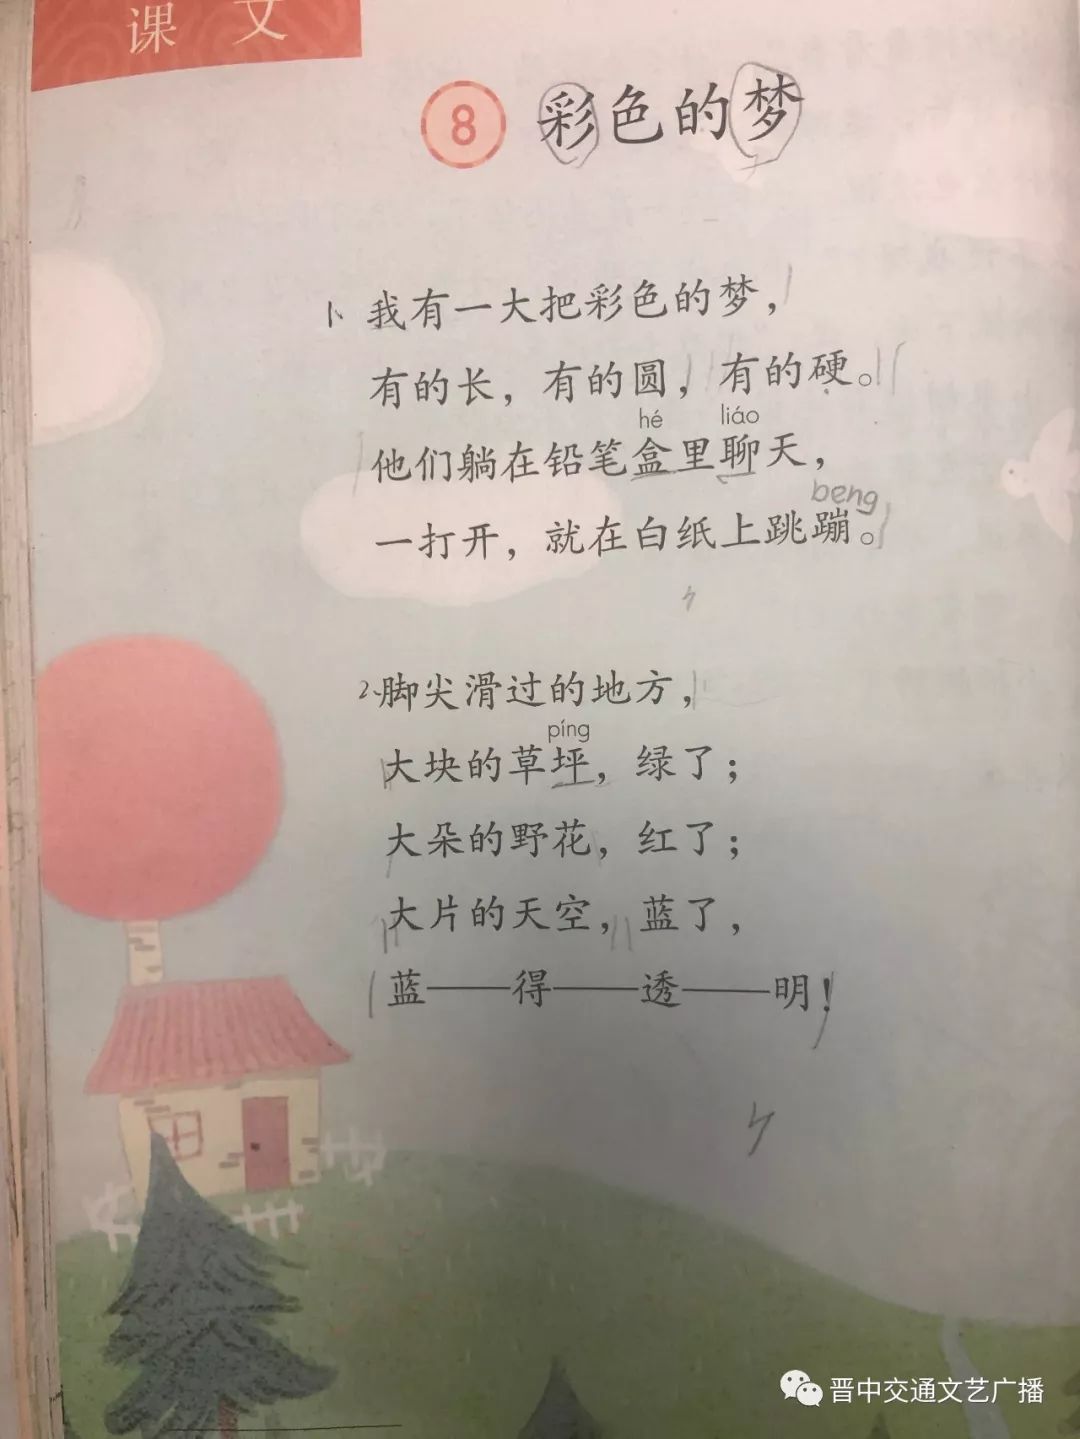 课 文
8 彩色的梦
1、我有一大把彩色的梦，
有的长，有的圆，有的硬。
hé liáo
他们躺在铅笔盒里聊天，
beng
一打开，就在白纸上跳蹦。
2、脚尖滑过的地方，
píng
大块的草坪，绿了；
大朵的野花，红了；
大片的天空，蓝了，
蓝——得——透——明！
晋中交通文艺广播